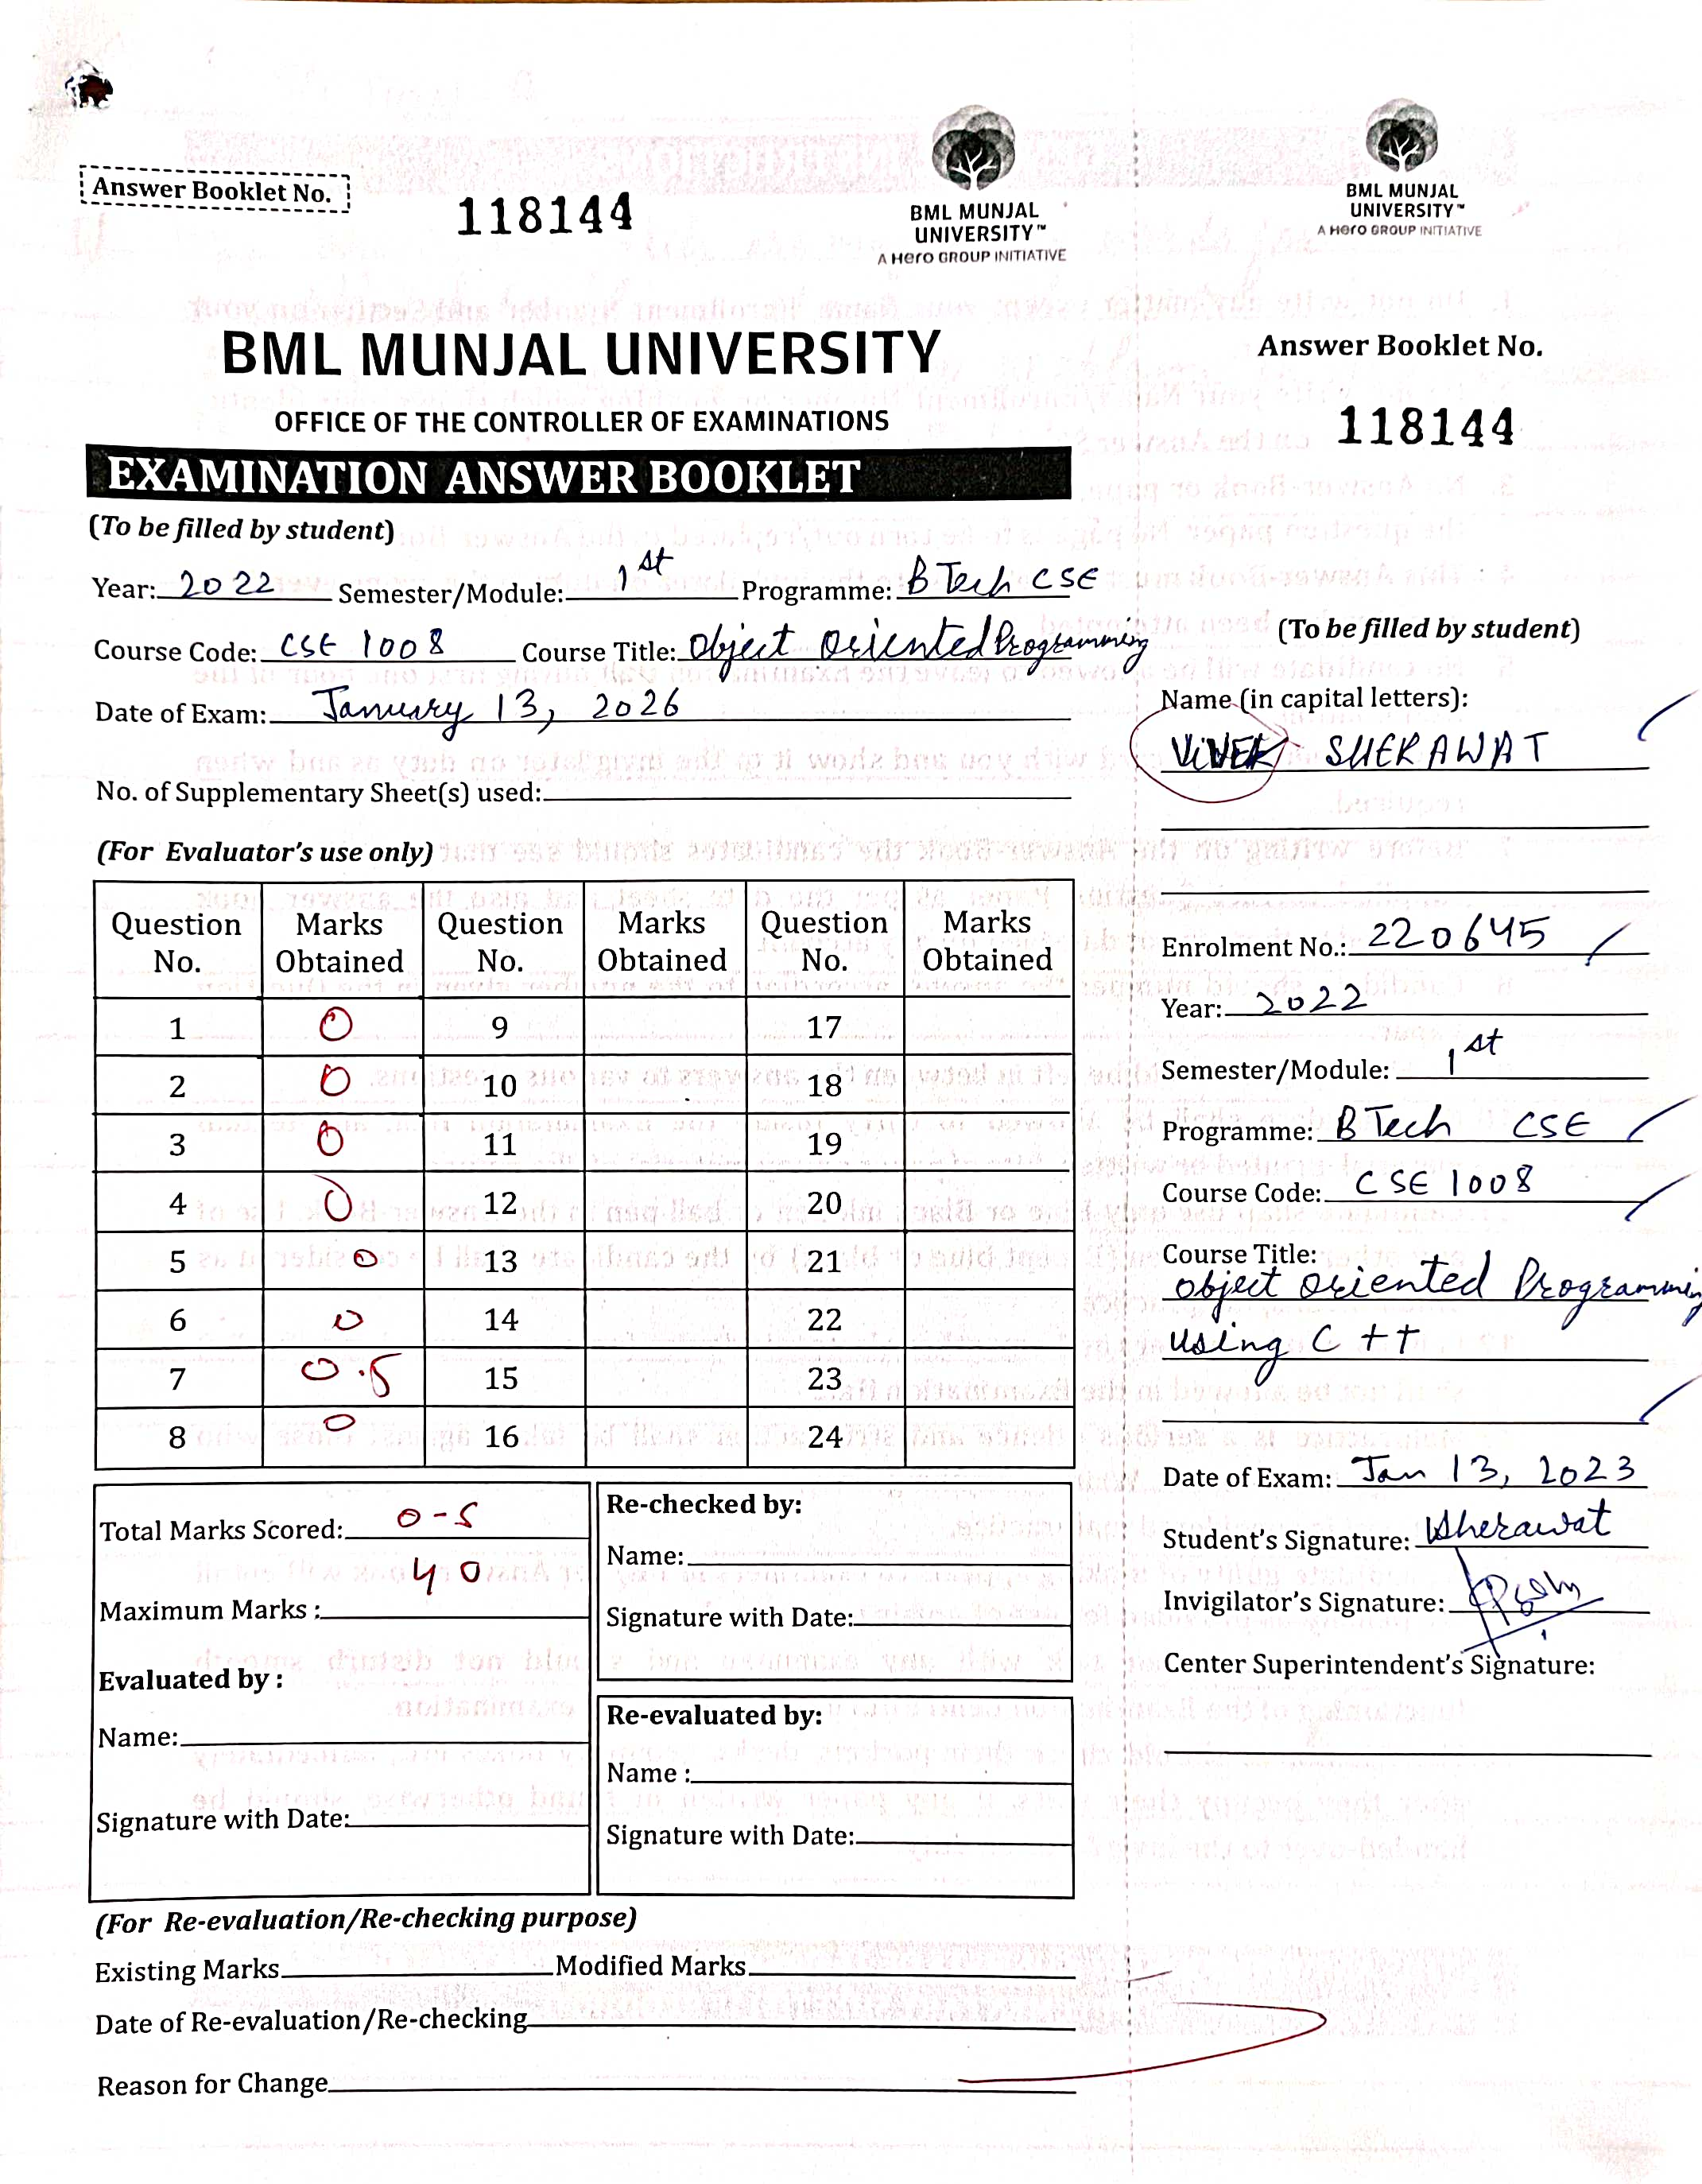 Answer Booklet No.
118144
BML MUNJAL
UNIVERSITY™
A Hero GROUP INITIATIVE
BML MUNJAL UNIVERSITY
OFFICE OF THE CONTROLLER OF EXAMINATIONS
EXAMINATION ANSWER BOOKLET
(To be filled by student)
Year: 2022 Semester/Module: 1st Programme: B Tech CSE
Course Code: CSE 1008 Course Title: Object Oriented Programming
Date of Exam: January 13, 2026
No. of Supplementary Sheet(s) used:
(For Evaluator's use only)
Question No. Marks Obtained Question No. Marks Obtained Question No. Marks Obtained
1 0 9 17
2 0 10 18
3 0 11 19
4 0 12 20
5 0 13 21
6 0 14 22
7 0.5 15 23
8 0 16 24
Total Marks Scored: 0-5
Maximum Marks : 40
Evaluated by :
Name:
Signature with Date:
Re-checked by:
Name:
Signature with Date:
Re-evaluated by:
Name :
Signature with Date:
(For Re-evaluation/Re-checking purpose)
Existing Marks Modified Marks
Date of Re-evaluation/Re-checking
Reason for Change
BML MUNJAL
UNIVERSITY™
A Hero GROUP INITIATIVE
Answer Booklet No.
118144
(To be filled by student)
Name (in capital letters):
ViVEK SHERAWAT
Enrolment No.: 220645
Year: 2022
Semester/Module: 1st
Programme: B Tech CSE
Course Code: CSE 1008
Course Title:
object oriented Programming
using C ++
Date of Exam: Jan 13, 2023
Student's Signature: Vsherawat
Invigilator's Signature:
Center Superintendent's Signature: